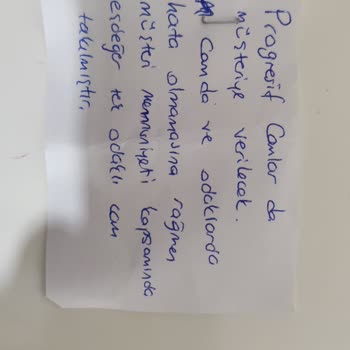 Progresif Camlar da
müşteriye verilecek.
Camda ve odaklarda
hata olmamasına rağmen
müşteri memnuniyeti kapsamında
eşdeğer tek odaklı cam
takılmıştır.